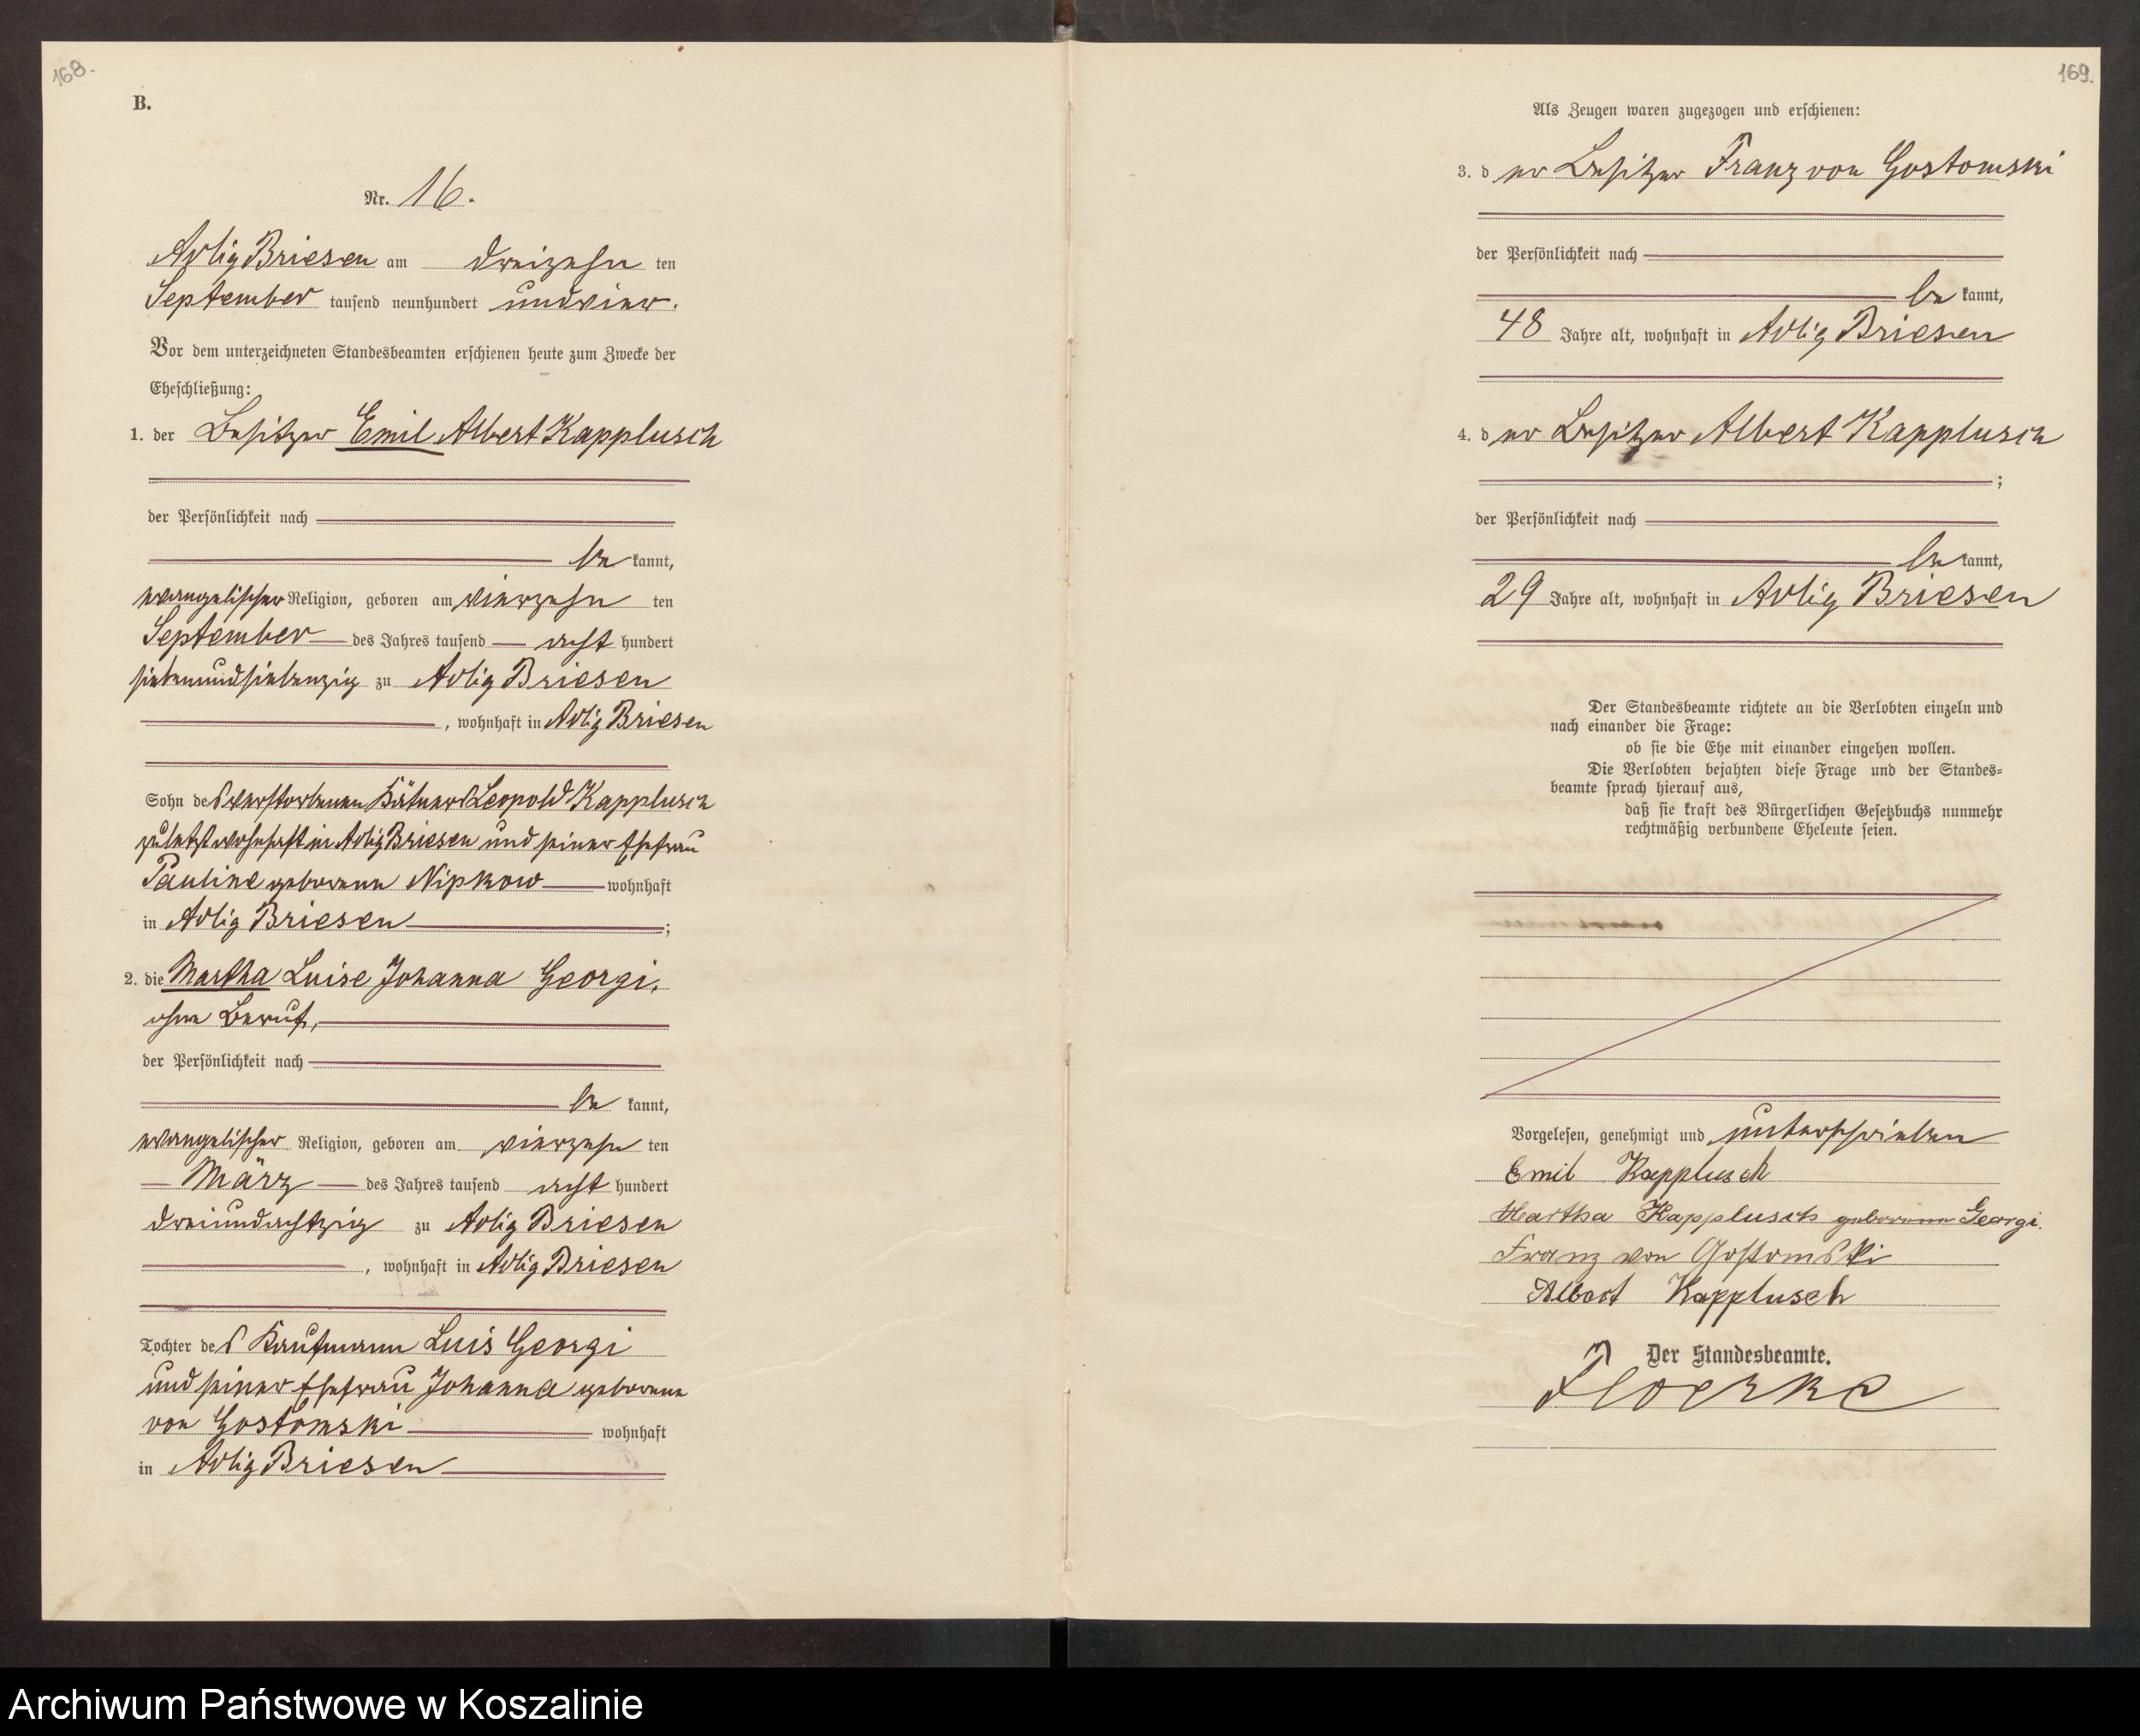 168.
B.
Nr. 16.
Adlig Briesen am dreizehn ten
September tausend neunhundert und vier.
Vor dem unterzeichneten Standesbeamten erschienen heute zum Zwecke der
Eheschließung:
1. der Besitzer Emil Albert Kapplusch
der Persönlichkeit nach
be kannt,
evangelischer Religion, geboren am vierzehn ten
September des Jahres tausend acht hundert
siebenundsiebenzig zu Adlig Briesen
, wohnhaft in Adlig Briesen
Sohn des verstorbenen Kätners Leopold Kapplusch
zuletzt wohnhaft in Adlig Briesen und seiner Ehefrau
Pauline geborene Nipkow wohnhaft
in Adlig Briesen ;
2. die Martha Luise Johanna Georgi,
ohne Beruf,
der Persönlichkeit nach
be kannt,
evangelischer Religion, geboren am vierzehn ten
März des Jahres tausend acht hundert
dreiundachtzig zu Adlig Briesen
, wohnhaft in Adlig Briesen
Tochter des Kaufmann Luis Georgi
und seiner Ehefrau Johanna geborene
von Gostomski wohnhaft
in Adlig Briesen
169.
Als Zeugen waren zugezogen und erschienen:
3. der Besitzer Franz von Gostomski
der Persönlichkeit nach
be kannt,
48 Jahre alt, wohnhaft in Adlig Briesen
4. der Besitzer Albert Kapplusch
;
der Persönlichkeit nach
be kannt,
29 Jahre alt, wohnhaft in Adlig Briesen
Der Standesbeamte richtete an die Verlobten einzeln und
nach einander die Frage:
ob sie die Ehe mit einander eingehen wollen.
Die Verlobten bejahten diese Frage und der Standes-
beamte sprach hierauf aus,
daß sie kraft des Bürgerlichen Gesetzbuchs nunmehr
rechtmäßig verbundene Eheleute seien.
Vorgelesen, genehmigt und unterschrieben
Emil Kapplusch
Martha Kapplusch geborene Georgi.
Franz von Gostomski
Albert Kapplusch
Der Standesbeamte.
Floerke
Archiwum Państwowe w Koszalinie